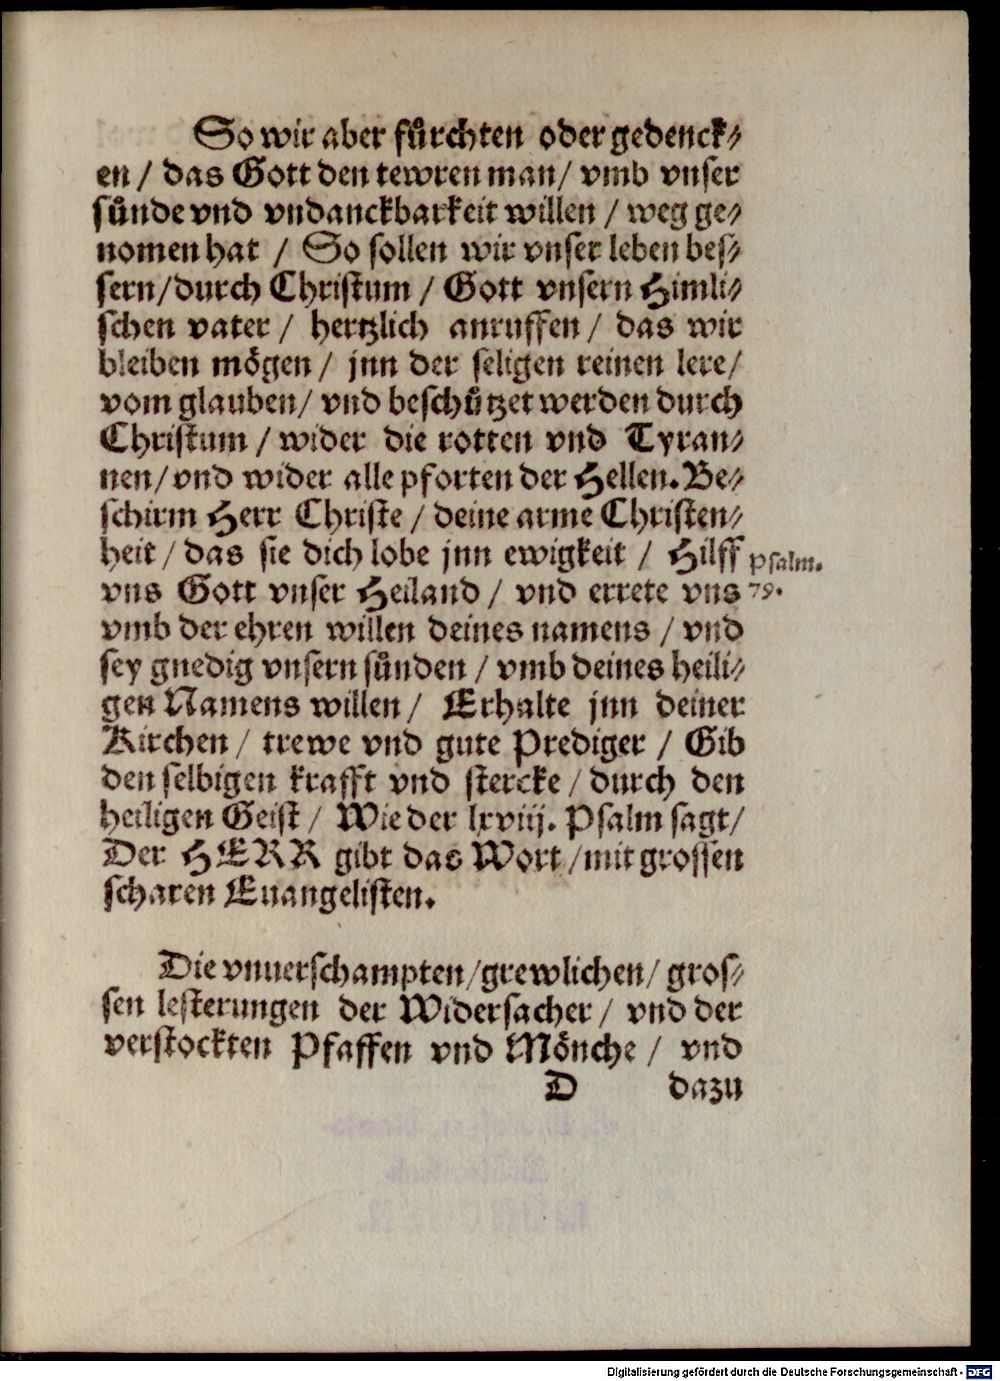 So wir aber fůrchten oder gedenck⸗
en / das Gott den tewren man / vmb vnser
sůnde vnd vndanckbarkeit willen / weg ge⸗
nomen hat / So sollen wir vnser leben bes⸗
sern / durch Christum / Gott vnsern Himli⸗
schen vater / hertzlich anruffen / das wir
bleiben mögen / jnn der seligen reinen lere /
vom glauben / vnd beschůtzet werden durch
Christum / wider die rotten vnd Tyran⸗
nen / vnd wider alle pforten der Hellen. Be⸗
schirm Herr Christe / deine arme Christen⸗
heit / das sie dich lobe jnn ewigkeit / Hilff Psalm.
vns Gott vnser Heiland / vnd errete vns 79.
vmb der ehren willen deines namens / vnd
sey gnedig vnsern sůnden / vmb deines heili⸗
gen Namens willen / Erhalte jnn deiner
Kirchen / trewe vnd gute Prediger / Gib
den selbigen krafft vnd stercke / durch den
heiligen Geist / Wie der lxviij. Psalm sagt /
Der HERR gibt das Wort / mit grossen
scharen Euangelisten.
Die vnuerschampten / grewlichen / gros⸗
sen lesterungen der Widersacher / vnd der
verstockten Pfaffen vnd Mönche / vnd
D dazu
Digitalisierung gefördert durch die Deutsche Forschungsgemeinschaft - DFG